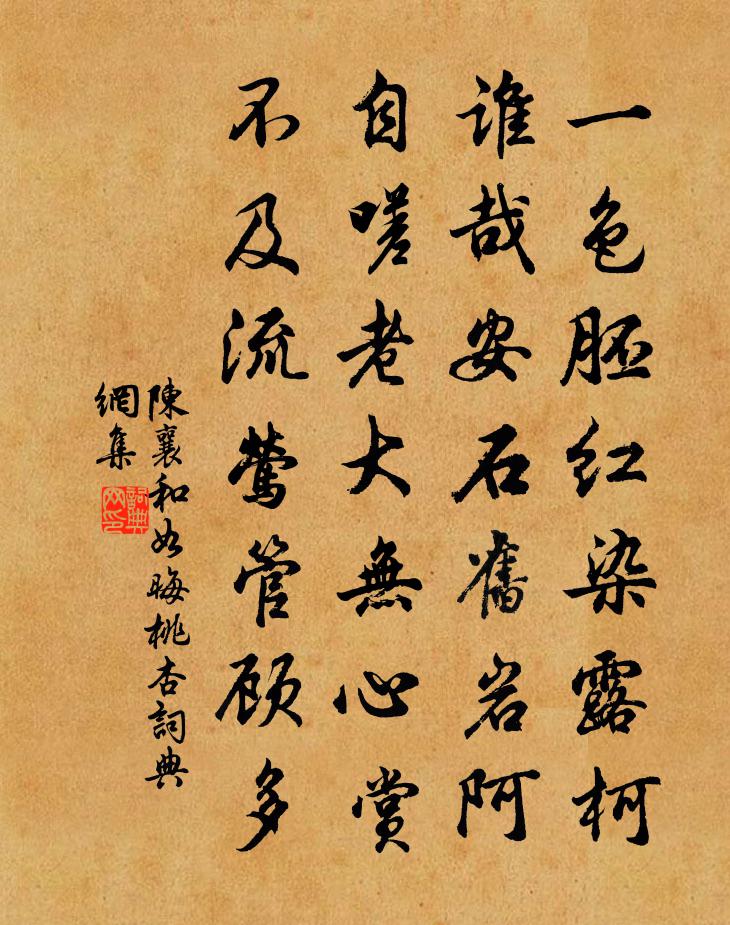 一色胚红染露柯
谁哉安石舊岩阿
自嗟老大無心赏
不及流莺管顾多
陳襄和如晦桃杏詞典
網集
詞典
网印